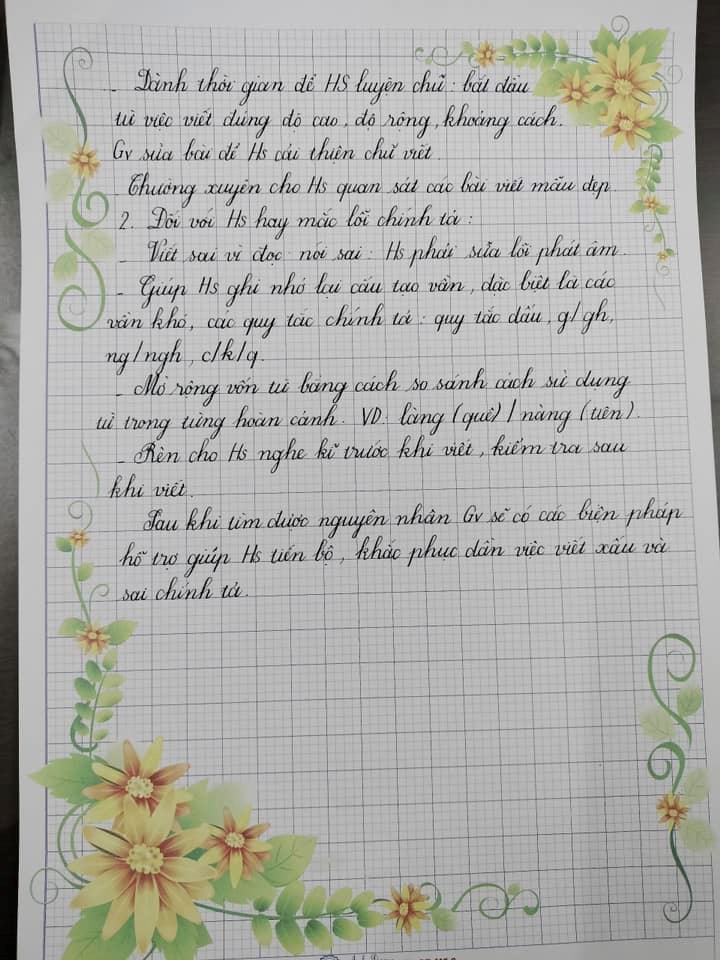 - Dành thời gian để HS luyện chữ : bắt đầu
từ việc viết đúng độ cao, độ rộng, khoảng cách.
Gv sửa bài để Hs cải thiện chữ viết.
Thường xuyên cho Hs quan sát các bài viết mẫu đẹp.
2. Đối với Hs hay mắc lỗi chính tả :
- Viết sai vì đọc nói sai : Hs phải sửa lỗi phát âm.
- Giúp Hs ghi nhớ lại cấu tạo vần, đặc biệt là các
vần khó, các quy tắc chính tả : quy tắc dấu, g/gh,
ng/ngh, c/k/q.
- Mở rộng vốn từ bằng cách so sánh cách sử dụng
từ trong từng hoàn cảnh. VD: làng (quê) / nàng (tiên).
- Rèn cho Hs nghe kĩ trước khi viết, kiểm tra sau
khi viết.
Sau khi tìm được nguyên nhân Gv sẽ có các biện pháp
hỗ trợ giúp Hs tiến bộ, khắc phục dần việc viết xấu và
sai chính tả.